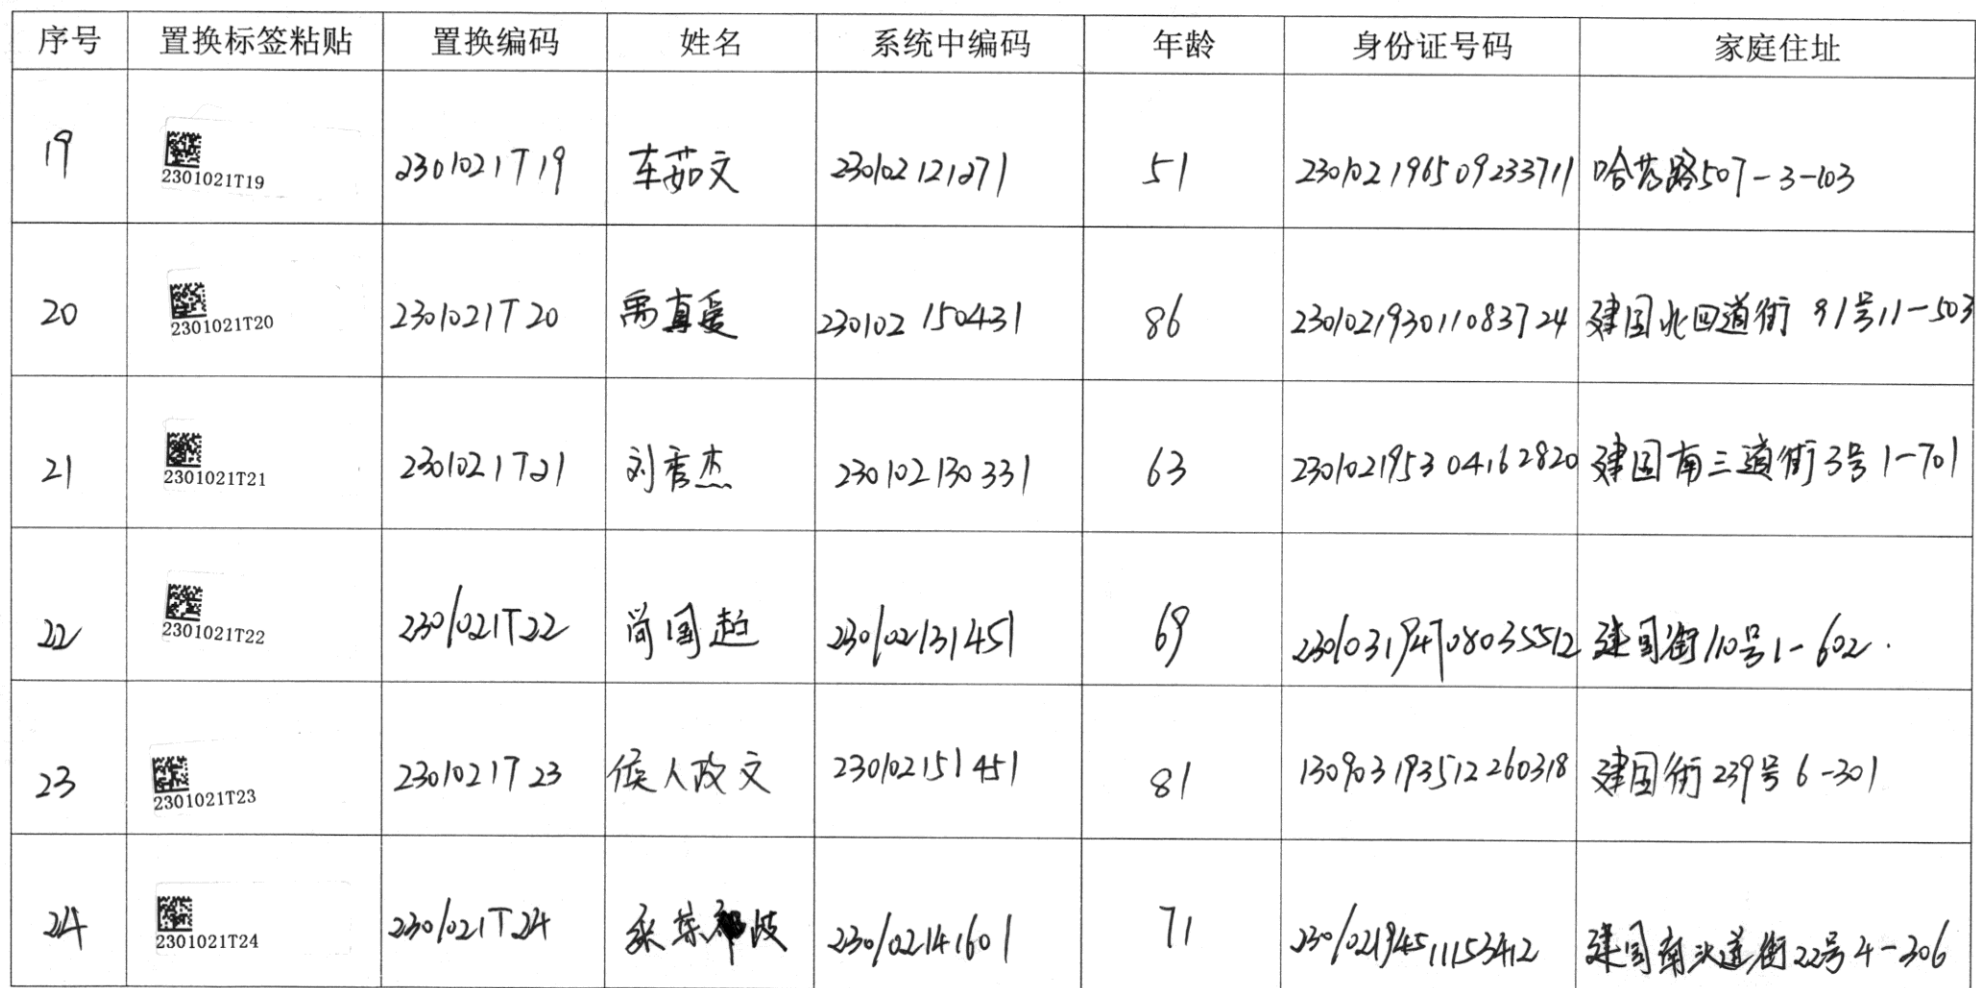 序号 置换标签粘贴 置换编码 姓名 系统中编码 年龄 身份证号码 家庭住址
19 2301021T19 2301021T19 车茹文 230102121271 51 230102196509233711 哈药路507-3-103
20 2301021T20 2301021T20 禹真爱 230102150431 86 230102193011083724 建国北四道街 91号11-503
21 2301021T21 2301021T21 刘秀杰 230102130331 63 230102195304162820 建国南三道街3号1-701
22 2301021T22 2301021T22 尚国起 230102131451 69 230103194708035512 建国街110号1-602.
23 2301021T23 2301021T23 侯人政文 230102151451 81 130903193512260318 建国街239号6-301
24 2301021T24 2301021T24 230102141601 71 230102194511153412 建国南头道街22号4-306